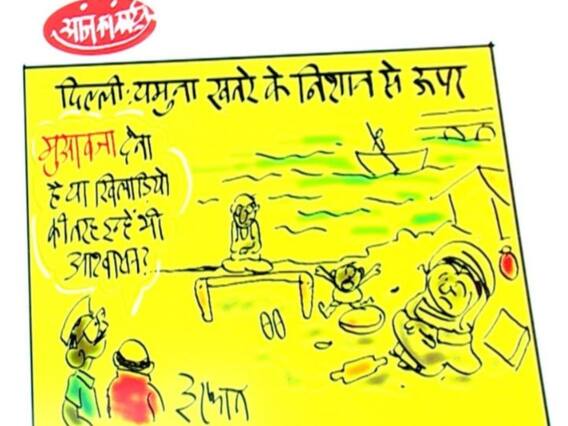 दिल्ली: यमुना खतरे के निशान से ऊपर
मुआवजा देना
है या खिलाड़ियों
की तरह इन्हें भी
आश्वासन?
इरफान